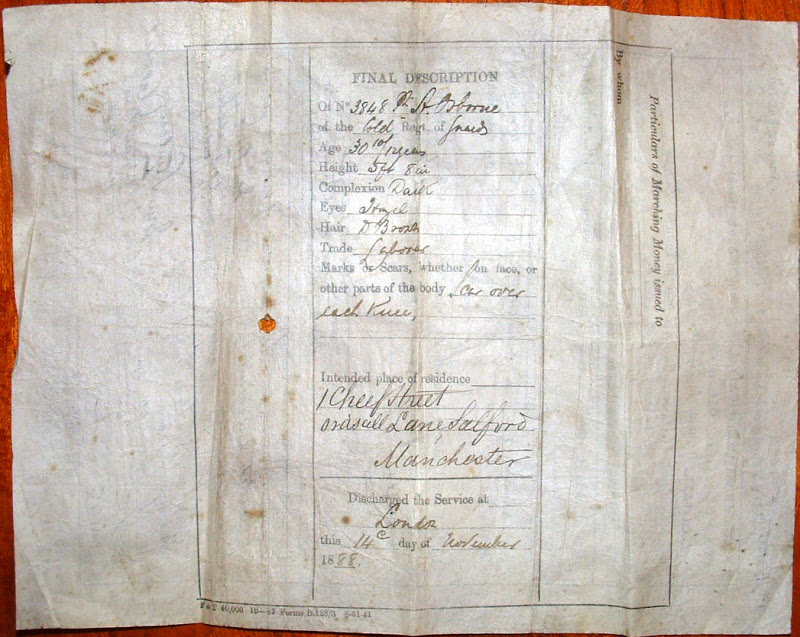 FINAL DESCRIPTION
Of No 3848 Pt. A. Osborne
of the Cold Regt. of Guards
Age 30 10/12 years
Height 5ft 8 in
Complexion Dark
Eyes Hazel
Hair D Brown
Trade Laborer
Marks or Scars, whether on face, or
other parts of the body Scar over
each Knee,
Intended place of residence
1 Street
Lane Salford
Manchester
Discharged the Service at
London
this 14 day of November
1888.
By whom
Particulars of Marching Money issued to
40,000 Forms B.128/3